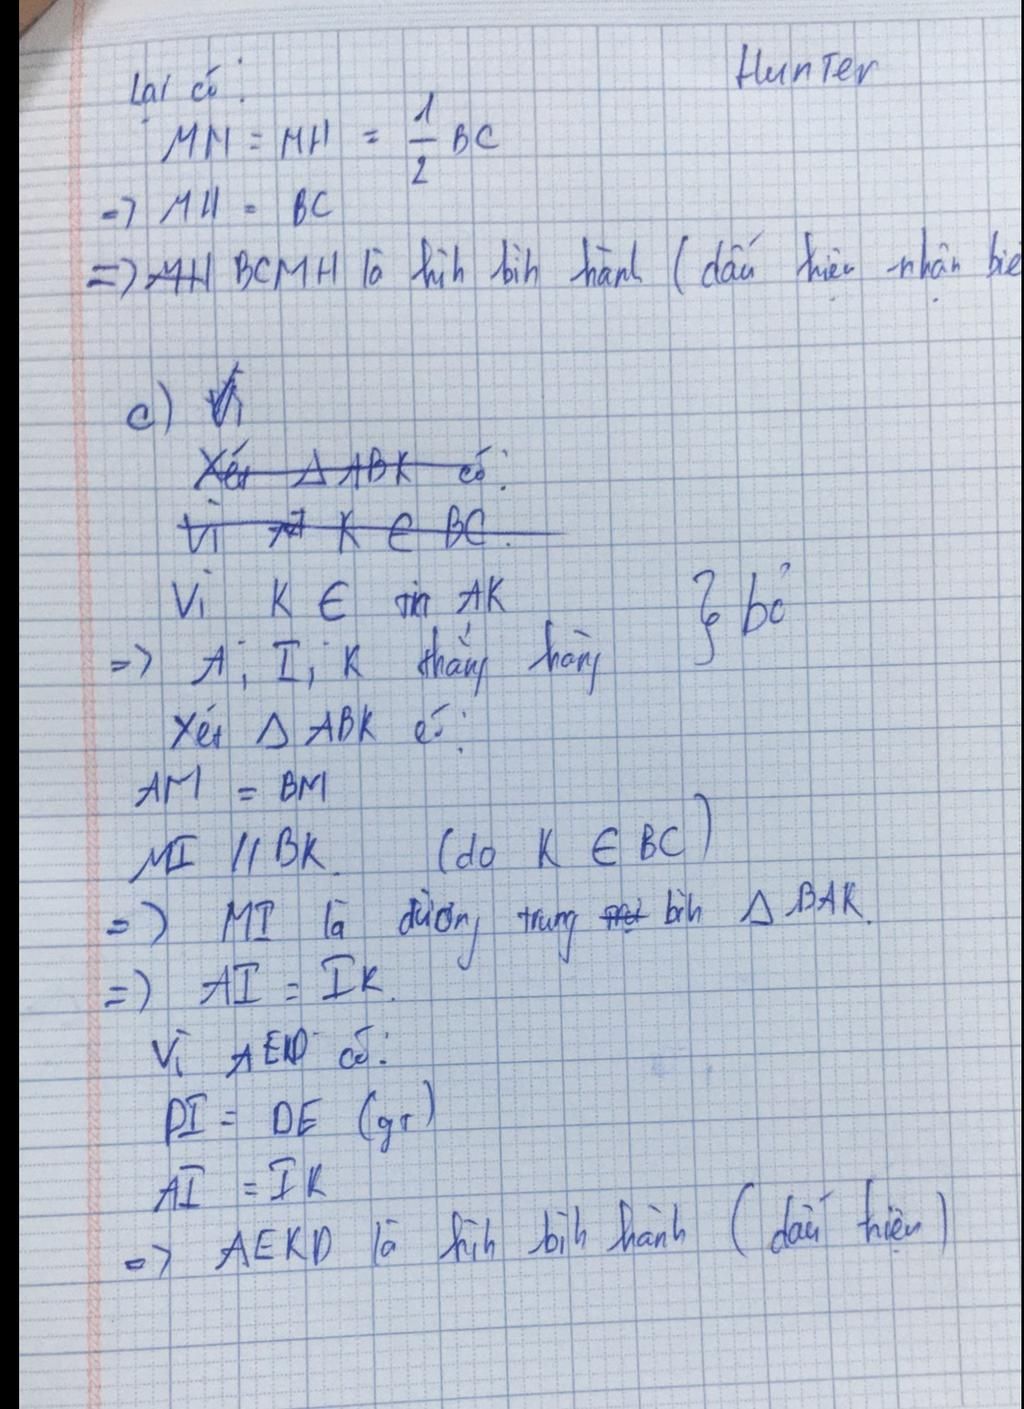 Hunter
Lại có:
MN = MH = 1/2 BC
=> MH = BC
=> MH BCMH là hìh bìh hành (dấu hiệu nhận biế
c) Vì
Xét Δ ABK có:
Vì K ∈ BC.
Vì K ∈ AK } bỏ
=> A, I, K thẳng hàng
Xét Δ ABK có:
AM = BM
MI // BK. (do K ∈ BC)
=> MI là đường trung bìh Δ BAK.
=> AI = IK.
Vì AEKD có:
DI = DE (gt)
AI = IK
=> AEKD là hìh bìh hành (dấu hiệu)